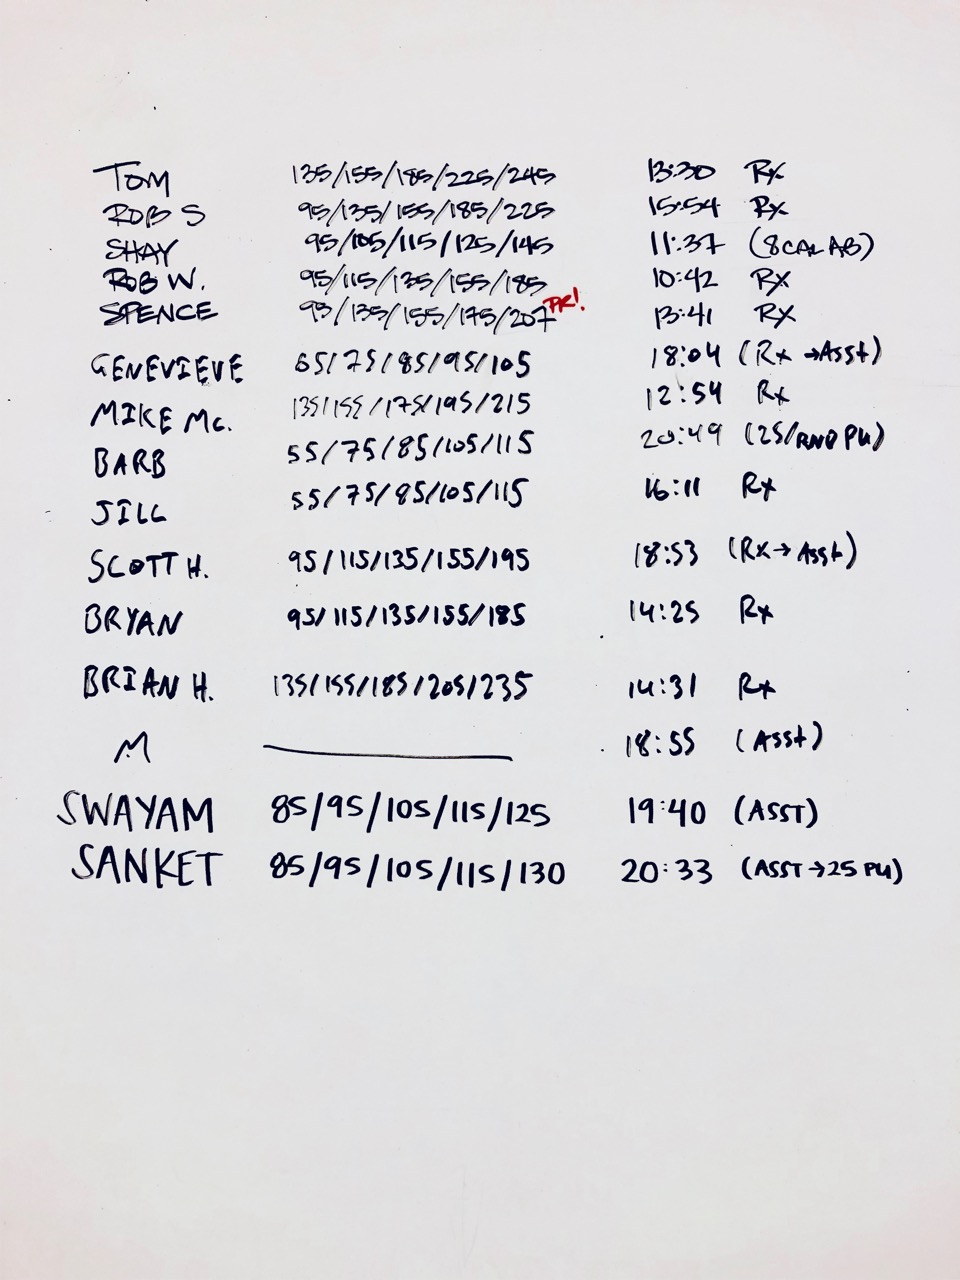 TOM 135/155/185/225/245 13:30 Rx
ROB S 95/135/155/185/225 15:54 Rx
SHAY 95/105/115/125/145 11:37 (8 CAL AB)
ROB W. 95/115/135/155/185 10:42 RX
SPENCE 95/135/155/175/207 PR! 13:41 RX
GENEVIEVE 65/75/85/95/105 18:04 (Rx→Asst)
MIKE Mc. 135/155/175/195/215 12:54 Rx
BARB 55/75/85/105/115 20:49 (25/RND PU)
JILL 55/75/85/105/115 16:11 Rx
SCOTT H. 95/115/135/155/195 18:53 (RX→Asst)
BRYAN 95/115/135/155/185 14:25 Rx
BRIAN H. 135/155/185/205/235 14:31 Rx
M 18:55 (Asst)
SWAYAM 85/95/105/115/125 19:40 (ASST)
SANKET 85/95/105/115/130 20:33 (ASST→25 PU)